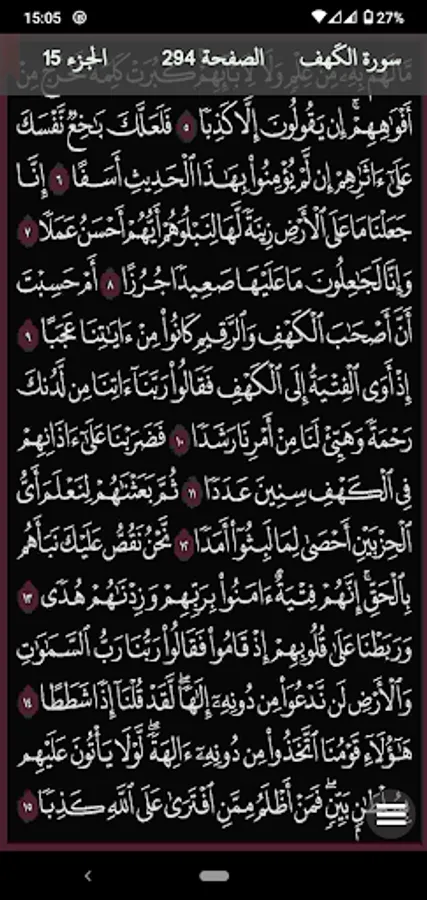 15:05 27%
سورة الكهف الصفحة 294 الجزء 15
مَّا لَهُم بِهِۦ مِنْ عِلْمٍ وَلَا لِأٓبَآئِهِمْ كَبُرَتْ كَلِمَةً تَخْرُجُ مِنْ
أَفْوَٰهِهِمْ ۚ إِن يَقُولُونَ إِلَّا كَذِبًا ٥ فَلَعَلَّكَ بَٰخِعٌ نَّفْسَكَ
عَلَىٰٓ ءَاثَٰرِهِمْ إِن لَّمْ يُؤْمِنُوا۟ بِهَٰذَا ٱلْحَدِيثِ أَسَفًا ٦ إِنَّا
جَعَلْنَا مَا عَلَى ٱلْأَرْضِ زِينَةً لَّهَا لِنَبْلُوَهُمْ أَيُّهُمْ أَحْسَنُ عَمَلًا ٧
وَإِنَّا لَجَٰعِلُونَ مَا عَلَيْهَا صَعِيدًا جُرُزًا ٨ أَمْ حَسِبْتَ
أَنَّ أَصْحَٰبَ ٱلْكَهْفِ وَٱلرَّقِيمِ كَانُوا۟ مِنْ ءَايَٰتِنَا عَجَبًا ٩
إِذْ أَوَى ٱلْفِتْيَةُ إِلَى ٱلْكَهْفِ فَقَالُوا۟ رَبَّنَآ ءَاتِنَا مِن لَّدُنكَ
رَحْمَةً وَهَيِّئْ لَنَا مِنْ أَمْرِنَا رَشَدًا ١٠ فَضَرَبْنَا عَلَىٰٓ ءَاذَانِهِمْ
فِى ٱلْكَهْفِ سِنِينَ عَدَدًا ١١ ثُمَّ بَعَثْنَٰهُمْ لِنَعْلَمَ أَىُّ
ٱلْحِزْبَيْنِ أَحْصَىٰ لِمَا لَبِثُوٓا۟ أَمَدًا ١٢ نَّحْنُ نَقُصُّ عَلَيْكَ نَبَأَهُم
بِٱلْحَقِّ ۚ إِنَّهُمْ فِتْيَةٌ ءَامَنُوا۟ بِرَبِّهِمْ وَزِدْنَٰهُمْ هُدًى ١٣
وَرَبَطْنَا عَلَىٰ قُلُوبِهِمْ إِذْ قَامُوا۟ فَقَالُوا۟ رَبُّنَا رَبُّ ٱلسَّمَٰوَٰتِ
وَٱلْأَرْضِ لَن نَّدْعُوَا۟ مِن دُونِهِۦٓ إِلَٰهًا ۖ لَّقَدْ قُلْنَآ إِذًا شَطَطًا ١٤
هَٰٓؤُلَآءِ قَوْمُنَا ٱتَّخَذُوا۟ مِن دُونِهِۦٓ ءَالِهَةً ۖ لَّوْلَا يَأْتُونَ عَلَيْهِم
بِسُلْطَٰنٍۭ بَيِّنٍ ۖ فَمَنْ أَظْلَمُ مِمَّنِ ٱفْتَرَىٰ عَلَى ٱللَّهِ كَذِبًا ١٥